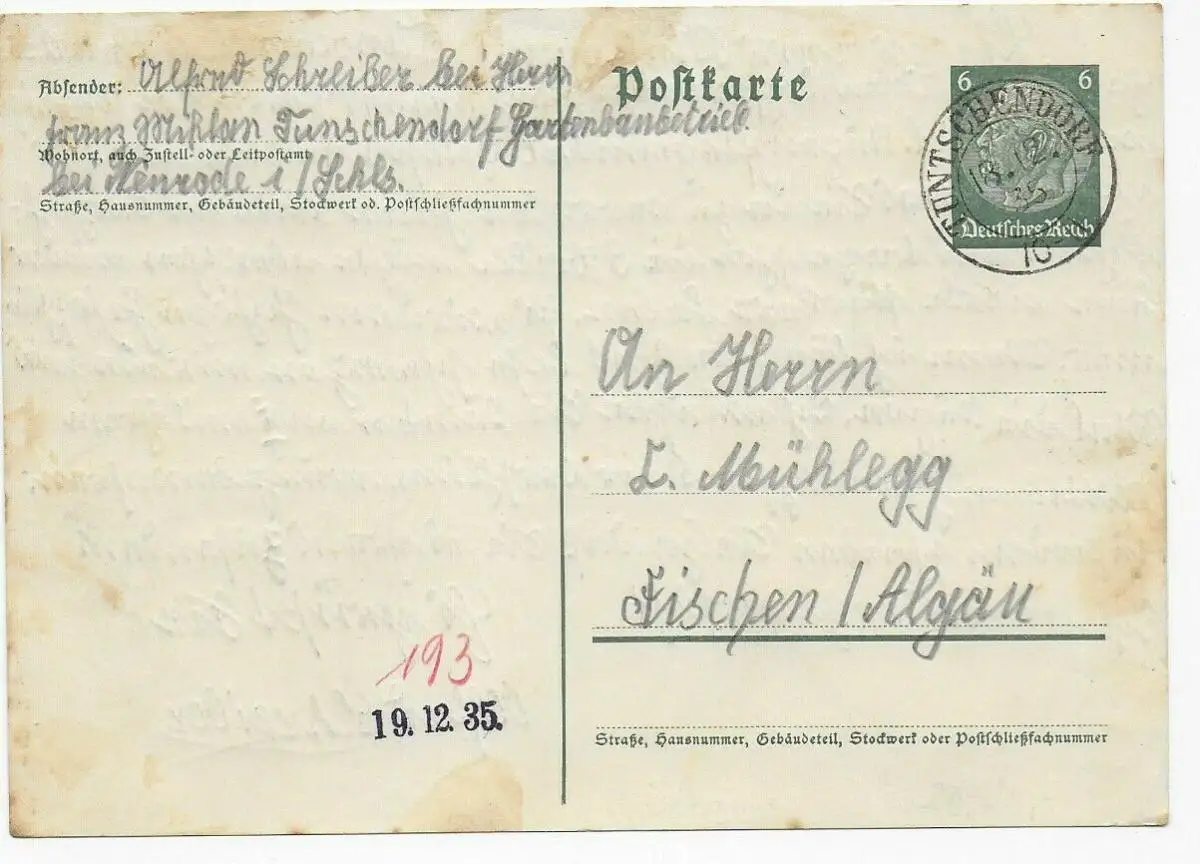 Absender: Alfred Schreiber bei Herrn
Franz Tunschendorf Gartenbaubetrieb.
Wohnort, auch Zustell- oder Leitpostamt
bei Neurode i/Schls.
Straße, Hausnummer, Gebäudeteil, Stockwerk od. Postschließfachnummer
Postkarte
6 6
TUNTSCHENDORF
18.12.
35
Deutsches Reich
An Herrn
L. Mühlegg
Fischen / Algäu
Straße, Hausnummer, Gebäudeteil, Stockwerk oder Postschließfachnummer
193
19. 12. 35.